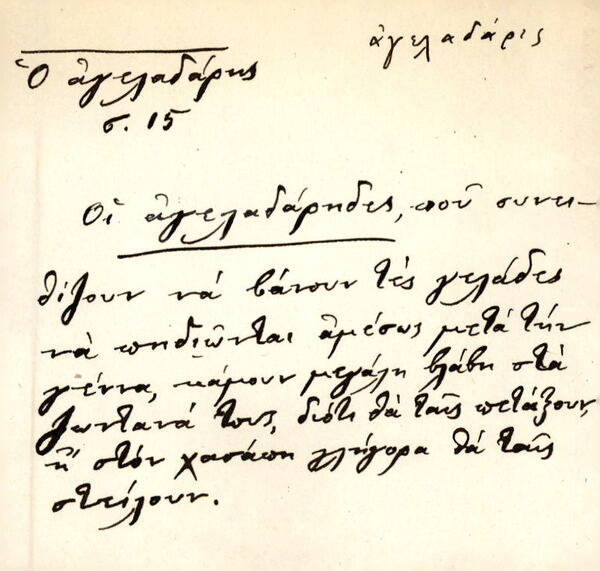 ἀγελαδάρις
Ὁ ἀγελαδάρης
σ. 15
Οἱ ἀγελαδάρηδες, ποῦ συνει-
θίζουν νά βάνουν τές γελάδες
νά πηδιῶνται ἀμέσως μετά τήν
γέννα, κάμουν μεγάλη βλάβη στά
ζωντανά τους, διότι θά ταῖς πετάξουν,
ἤ στόν χασάπη γλήγορα θά ταῖς
στείλουν.